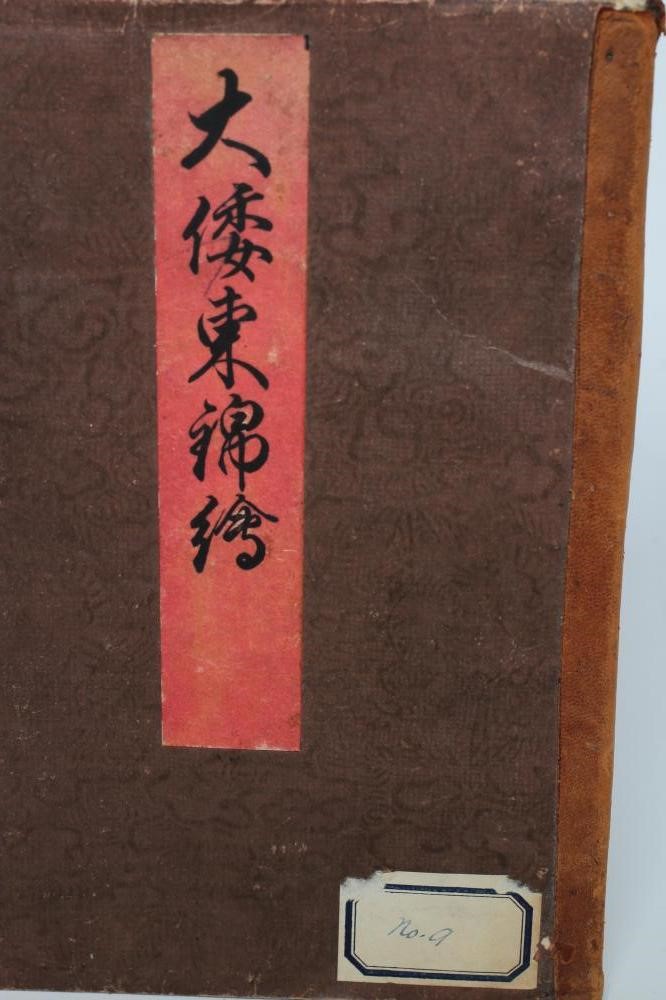 大倭東錦繪
No. 9